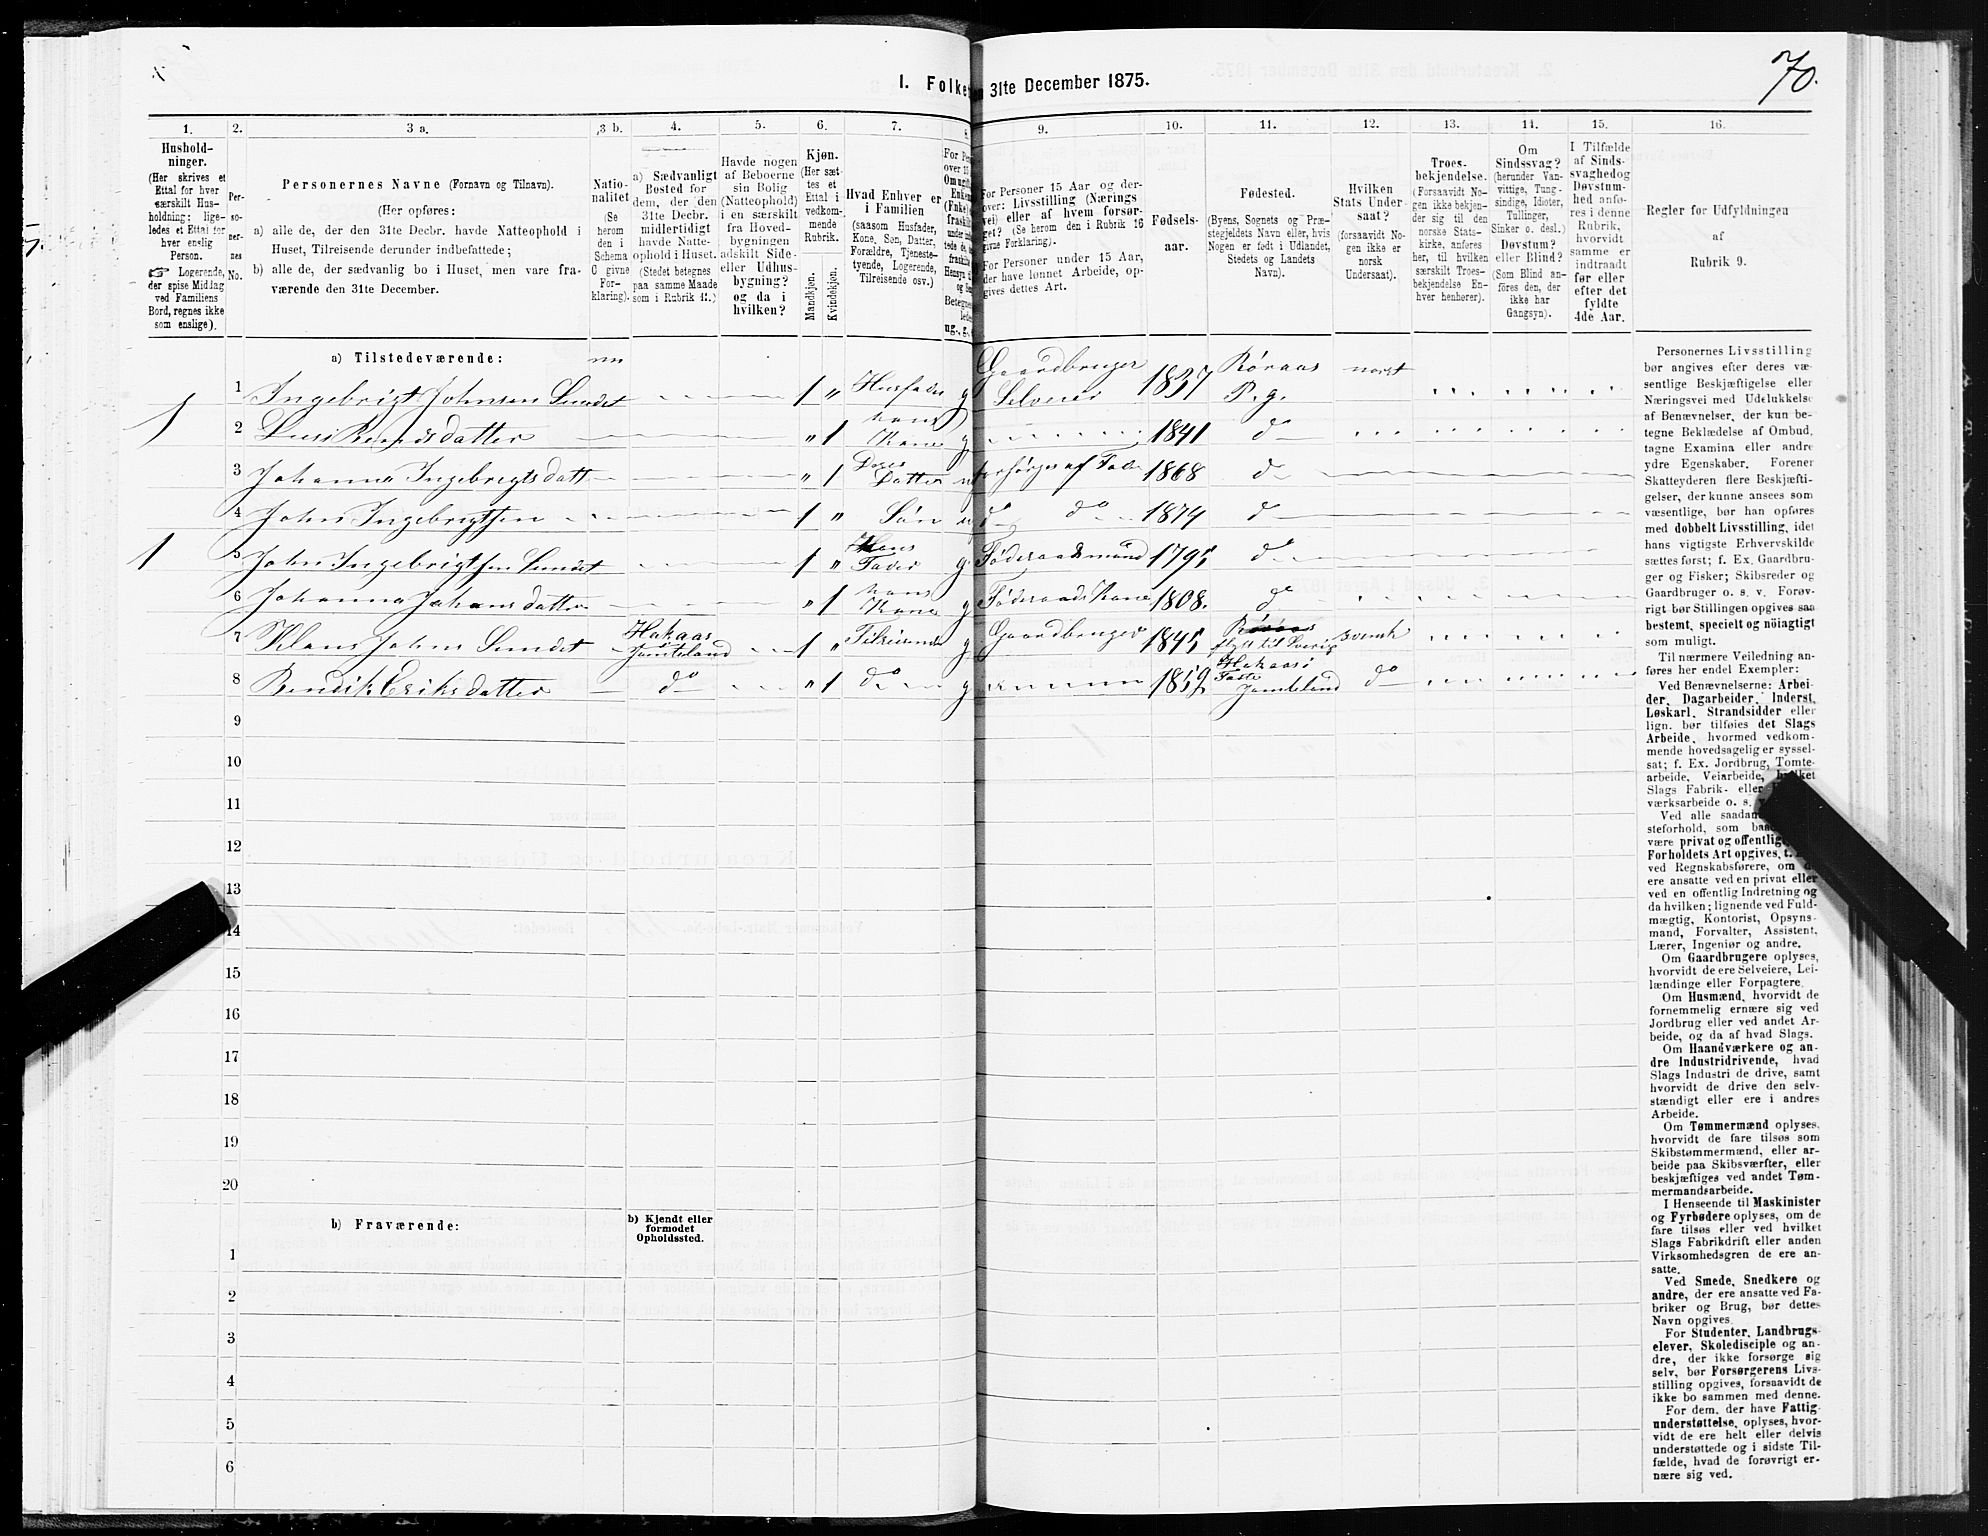 70.
I. Folke 31te December 1875.
1. 2. 3 a. 3 b. 4. 5. 6. 7. 8. 9. 10. 11. 12. 13. 14. 15. 16.
Hushold-
ninger.
(Her skrives et
Ettal for hver
særskilt Hus-
holdning; lige-
ledes et Ettal for
hver enslig
Person.
☞ Logerende,
der spise Middag
ved Familiens
Bord, regnes ikke
som enslige).
Per-
so-
ner-
nes
No.
Personernes Navne (Fornavn og Tilnavn).
(Her opføres:
a) alle de, der den 31te Decbr. havde Natteophold i
Huset, Tilreisende derunder indbefattede;
b) alle de, der sædvanlig bo i Huset, men vare fra-
værende den 31te December.
Natio-
nalitet
(Se
herom
den i
Schema
C givne
For-
klaring).
a) Sædvanligt
Bosted for
dem, der den
31te Decbr.
midlertidigt
havde Natte-
ophold i Huset.
(Stedet betegnes
paa samme Maade
som i Rubrik 11.)
Havde nogen
af Beboerne
sin Bolig
(Natteophold)
i en særskilt
fra Hoved-
bygningen
adskilt Side-
eller Udhus-
bygning?
og da i
hvilken?
Kjøn.
(Her sæt-
tes et
Ettal i
vedkom-
mende
Rubrik.
Mandkjøn.
Kvindekjøn.
Hvad Enhver er
i Familien
(saasom Husfader,
Kone, Søn, Datter,
Forældre, Tjeneste-
tyende, Logerende,
Tilreisende osv.)
For Personer 15 Aar og der-
over: Livsstilling (Nærings-
vei) eller af hvem forsør-
get? (Se herom i Rubrik 16
givne Forklaring).
For Personer under 15 Aar,
der have lønnet Arbeide, op-
gives dettes Art.
Fødsels-
aar.
Fødested.
(Byens, Sognets og Præ-
stegjeldets Navn eller, hvis
Nogen er født i Udlandet,
Stedets og Landets
Navn).
Hvilken
Stats Under-
saat?
(forsaavidt No-
gen ikke er
norsk
Undersaat).
Troes-
bekjendelse.
(Forsaavidt No-
gen ikke bekjen-
der sig til den
norske Stats-
kirke, anføres
her, til hvilken
særskilt Troes-
bekjendelse En-
hver henhører).
Om
Sindssvag?
(herunder Van-
vittige, Tung-
sindige, Idioter,
Tullinger,
Sinker o. desl.)
Døvstum?
eller Blind?
(Som Blind an-
føres den, der
ikke har
Gangsyn).
I Tilfælde
af Sinds-
svaghed og
Døvstum-
hed anfø-
res i denne
Rubrik,
hvorvidt
samme er
indtraadt
før eller
efter det
fyldte
4de Aar.
Regler for Udfyldningen
af
Rubrik 9.
a) Tilstedeværende:
1 Ingebrigt Johnsen Sundet 1 " Husfader g Gaardbruger Selveier 1837 Røraas P.g. norsk
2 Datter " 1 hans Kone g 1841 do
3 Johanna Ingebrigtsdatt " 1 Deres Datter forsørges af Fader 1868 do
4 John Ingebrigtsen 1 " Søn do do 1874 do
5 John Ingebrigtsen Sundet 1 " Hans Fader g Føderaadsmand 1795 do
6 Johanna Johansdatter " 1 hans Kone g Føderaads Kone 1808. do
7 Klaus Johns Sundet Hakaas Jämteland 1 " Tilreisende g Gaardbruger 1845 Røraas flytt til Sverig svensk
8 Eriksdatter do " 1 do g 1852 Hakaas Jamteland do
9
10
11
12
13
14
15
16
17
18
19
20
b) Fraværende:
b) Kjendt eller
formodet
Opholdssted.
1
2
3
4
5
6
Personernes Livsstilling
bør angives efter deres væ-
sentlige Beskjæftigelse eller
Næringsvei med Udelukkelse
af Benævnelser, der kun be-
tegne Beklædelse af Ombud,
tagne Examina eller andre
ydre Egenskaber. Forener
Skatteyderen flere Beskjæfti-
gelser, der kunne ansees som
væsentlige, bør han opføres
med dobbelt Livsstilling, idet
hans vigtigste Erhvervskilde
sættes først; f. Ex. Gaardbru-
ger og Fisker; Skibsreder og
Gaardbruger o. s. v. Forøv-
rigt bør Stillingen opgives saa
bestemt, specielt og nøiagtigt
som muligt.
Til nærmere Veiledning an-
føres her endel Exempler:
Ved Benævnelserne: Arbei-
der, Dagarbeider, Inderst,
Løskarl, Strandsidder eller
lign. bør tilføies det Slags
Arbeide, hvormed vedkom-
mende hovedsagelig er syssel-
sat; f. Ex. Jordbrug, Tomte-
arbeide, Veiarbeide, hvilket
Slags Fabrik- eller
værksarbeide o. s.
Ved alle saadan
steforhold, som
være privat og offentlig
Forholdets Art opgives,
ved Regnskabsførere, om
ere ansatte ved en privat eller
ved en offentlig Indretning og
da hvilken; lignende ved Fuld-
mægtig, Kontorist, Opsyns-
mand, Forvalter, Assistent,
Lærer, Ingeniør og andre.
Om Gaardbrugere oplyses,
hvorvidt de ere Selveiere, Lei-
lændinge eller Forpagtere.
Om Husmænd, hvorvidt de
fornemmelig ernære sig ved
Jordbrug eller ved andet Ar-
beide, og da af hvad Slags.
Om Haandværkere og an-
dre Industridrivende, hvad
Slags Industri de drive, samt
hvorvidt de drive den selv-
stændigt eller ere i andres
Arbeide.
Om Tømmermænd oplyses,
hvorvidt de fare tilsøs som
Skibstømmermænd, eller ar-
beide paa Skibsværfter, eller
beskjæftiges ved andet Tøm-
mermandsarbeide.
I Henseende til Maskinister
og Fyrbødere oplyses, om de
fare tilsøs eller ved hvilket
Slags Fabrikdrift eller anden
Virksomhedsgren de ere an-
satte.
Ved Smede, Snedkere og
andre, der ere ansatte ved Fa-
briker og Brug, bør dettes
Navn opgives.
For Studenter, Landbrugs-
elever, Skoledisciple og an-
dre, der ikke forsørge sig
selv, bør Forsørgerens Livs-
stilling opgives, forsaavidt de
ikke bo sammen med denne.
For dem, der have Fattig-
understøttelse, oplyses, hvor-
vidt de ere helt eller delvis
understøttede og i sidste Til-
fælde, hvad de forøvrigt er-
nære sig ved.